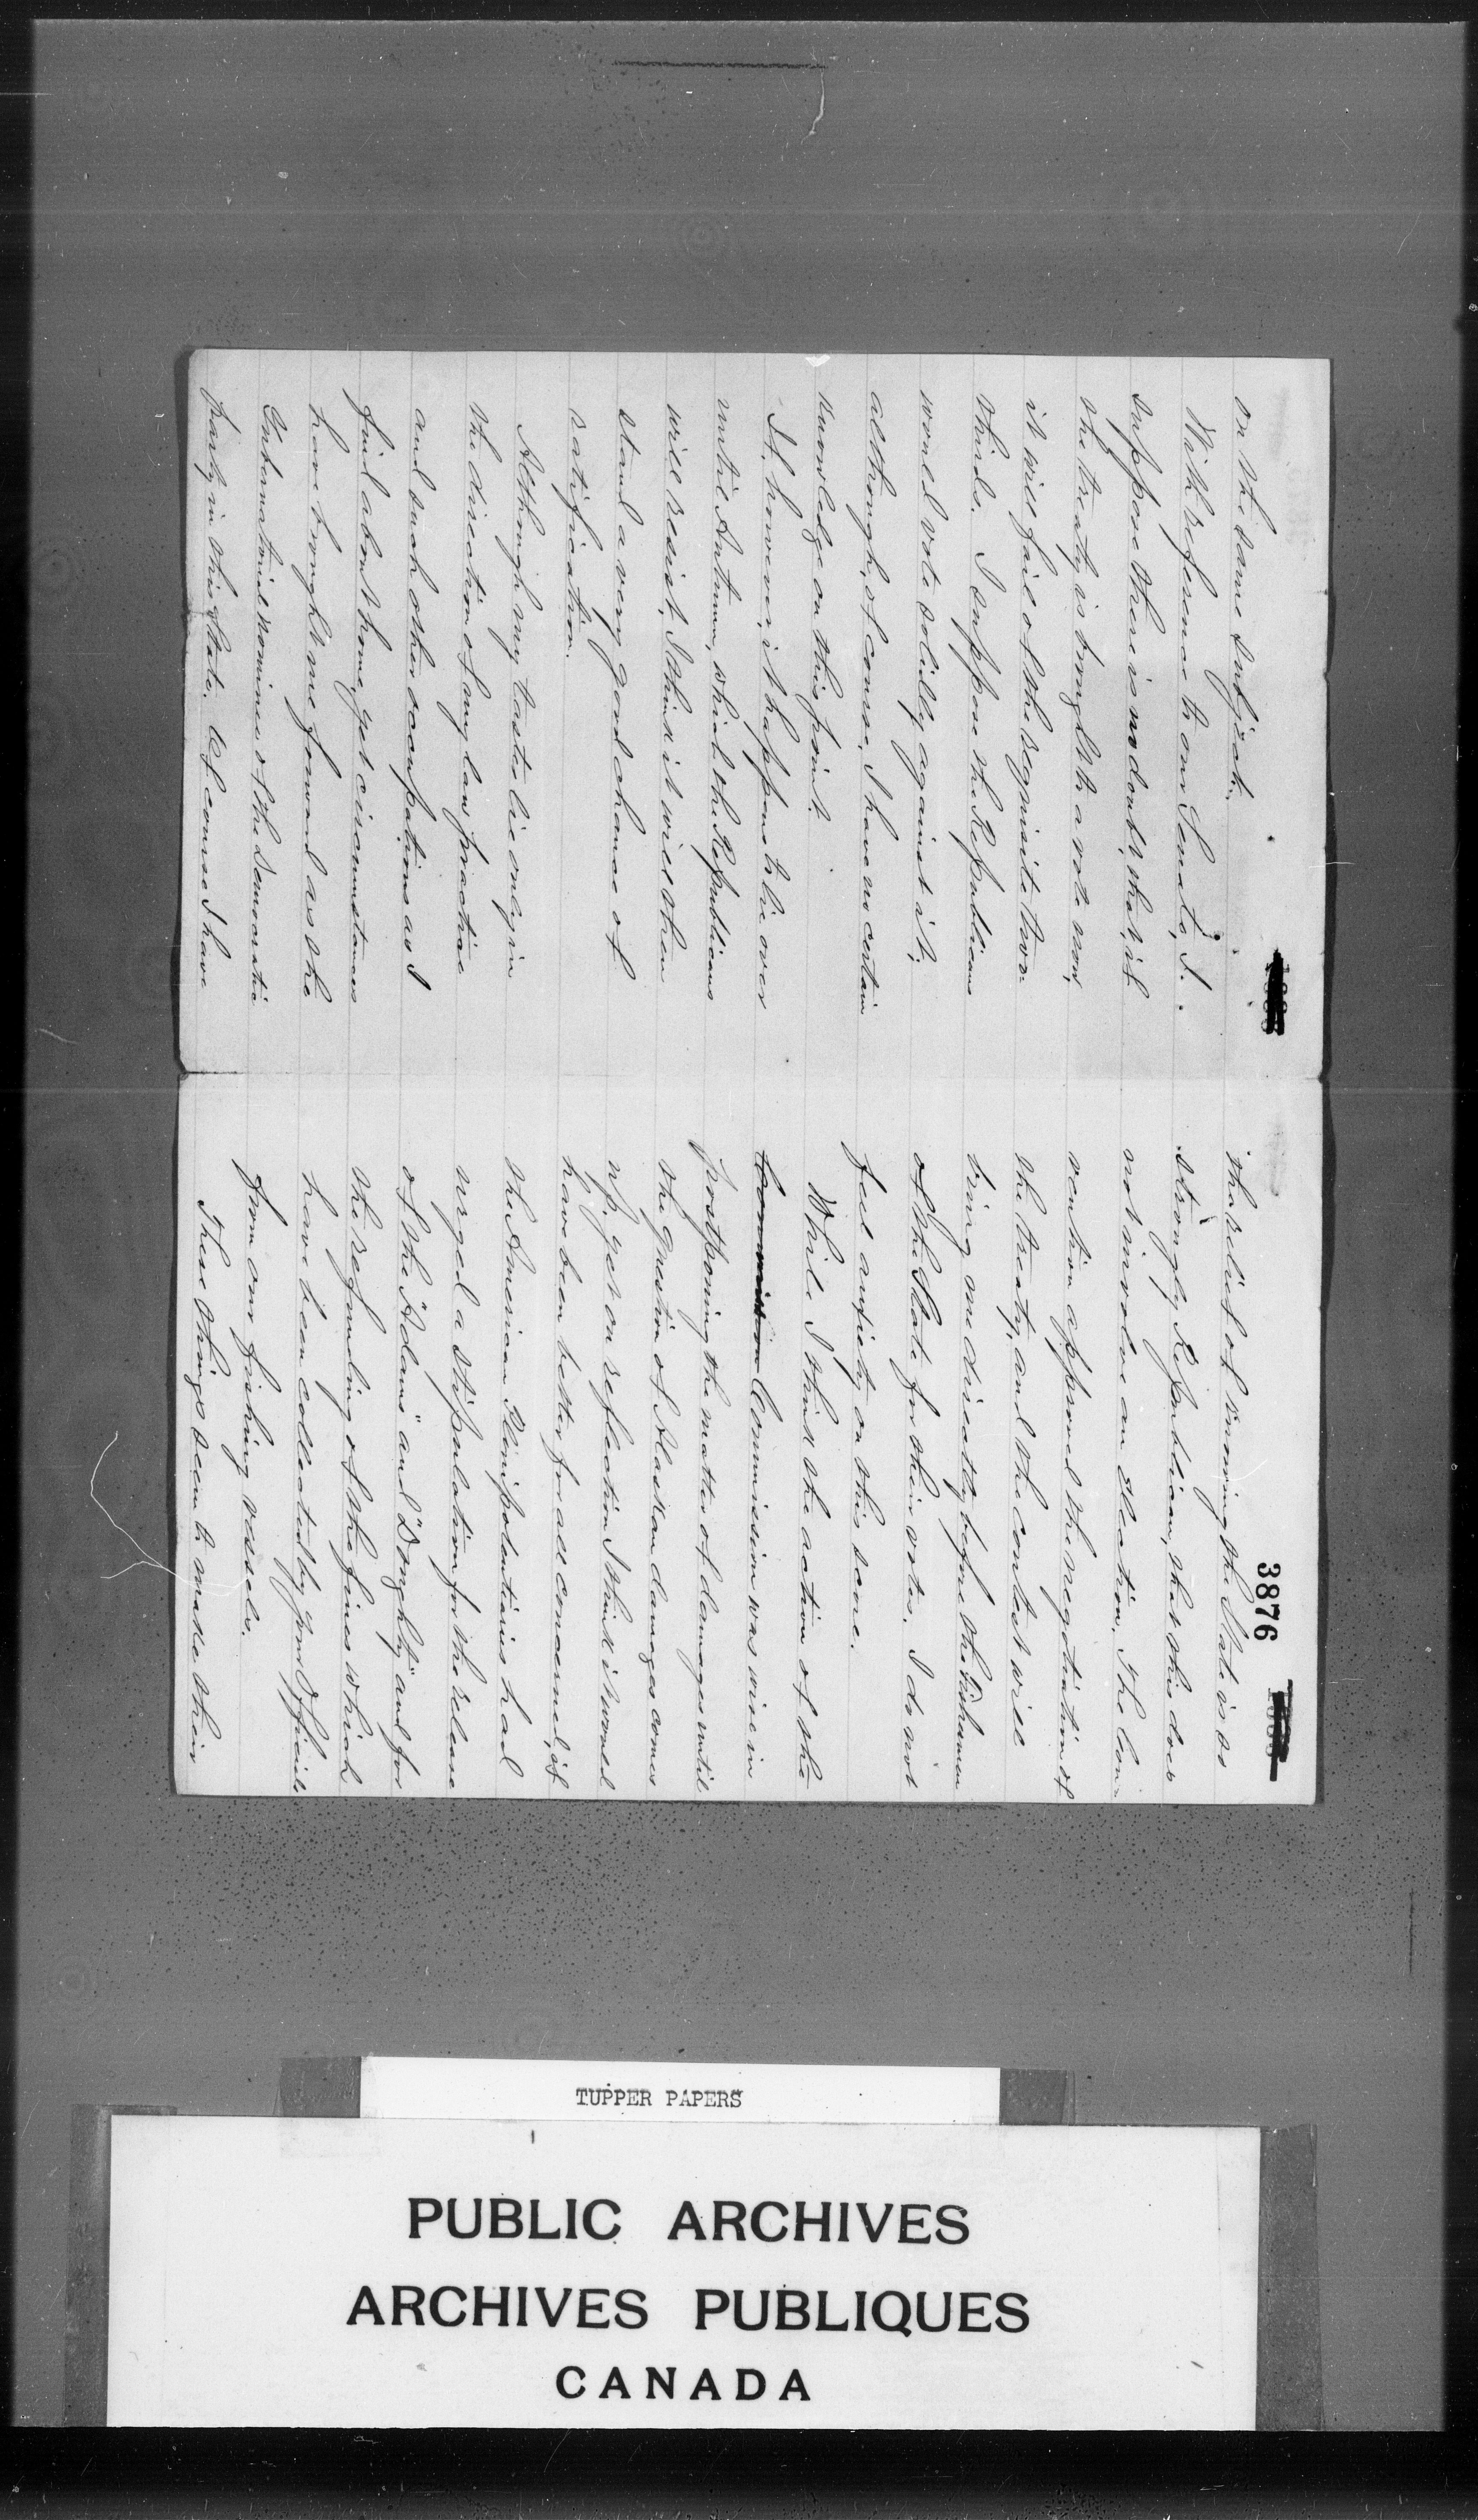 on the same subject.
With reference to our Senate, I
suppose there is no doubt, that, if
the treaty is brought to a vote now,
it will fail of the requisite two-
thirds. I suppose the Republicans
would vote solidly against it,
although, of course, I have no certain
knowledge on this point.
If, however, it happens to lie over
until Autumn, which the Republicans
will resist, I think it will then
stand a very good chance of
ratification.
Although my tastes lie only in
the direction of my law practice
and such other occupations as I
find about home, yet circumstances
have brought me forward as the
Gubernatorial nominee of the Democratic
party in this State. Of course I have
3876
the relief of knowing the State is so
strongly Republican, that this does
not involve an Election. The Con-
vention approved the negotiation of
the treaty, and the contest will
bring me directly before the Fishermen
of the State for their votes. I do not
feel anxiety on this score.
While I think the action of the
Commission Commission was wise in
postponing the matter of damages until
the question of Alaskan damages comes
up, yet on reflection I think it would
have been better for all concerned, if
the American Plenipotentiaries had
urged a stipulation for the release
of the "Adams" and "Doughty" and for
the refunding of the fines which
have been collected by your Officials
from our fishing vessels.
These things seem to make their
TUPPER PAPERS
PUBLIC ARCHIVES
ARCHIVES PUBLIQUES
CANADA